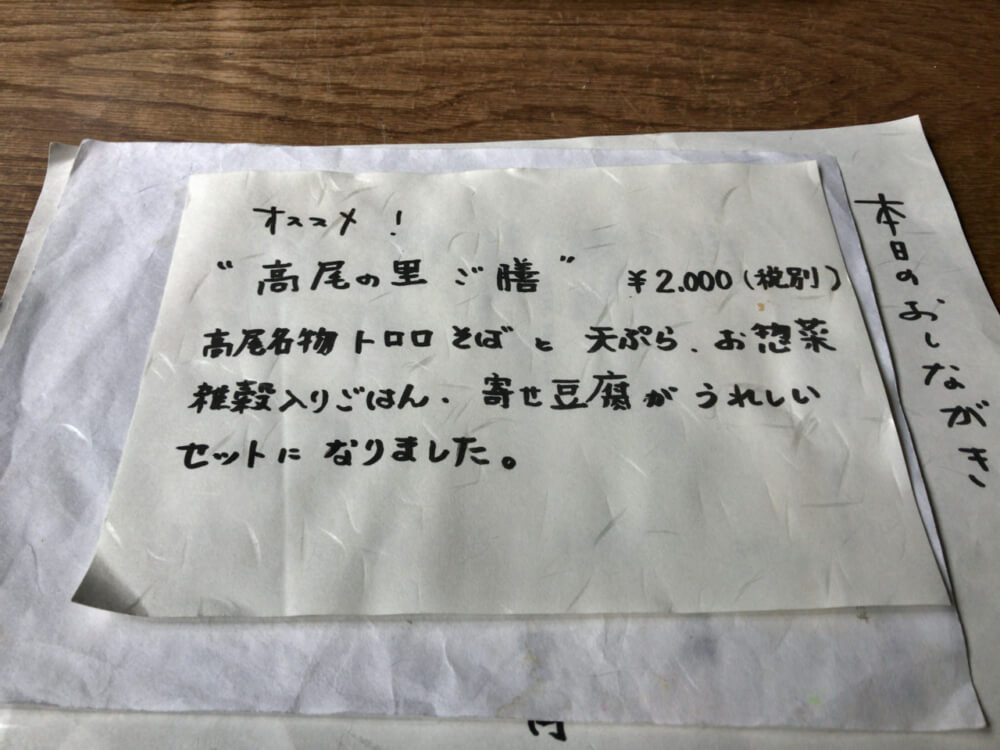 オススメ！
“高尾の里 ご膳” ￥2.000（税別）
高尾名物トロロそばと 天ぷら、お惣菜
雑穀入りごはん・寄せ豆腐がうれしい
セットに なりました。
本日のおしながき
円